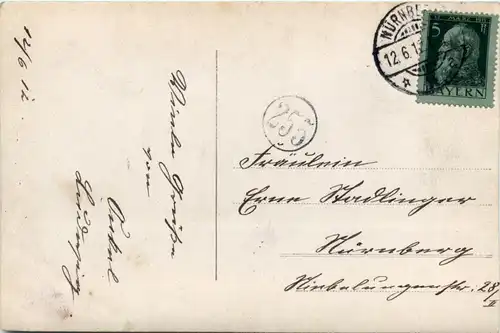 12/6 12.
Viele Grüße
von
Onkel
Ludwig
NÜRNB
12.6.1
12. MÄRZ 1911
5
BAYERN
255
Fräulein
Erne Stadlinger
Nürnberg
Niebelungenstr. 28/II